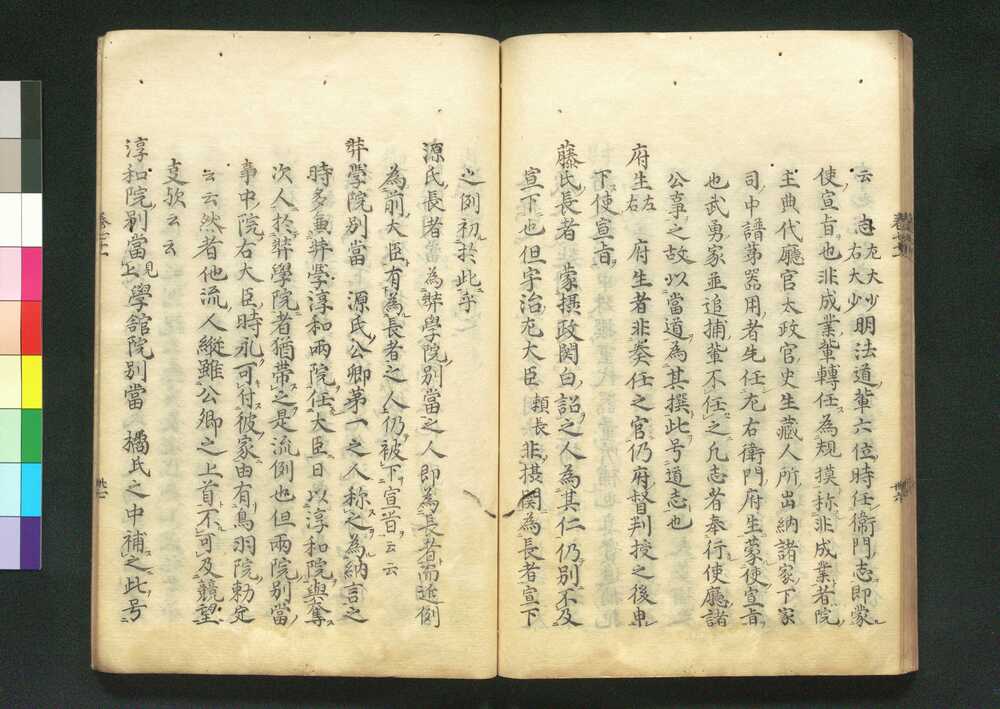 云云 志左大少右大少 明法道輩六位時任衛門志即蒙
使宣旨也非成業輩轉任為規摸称非成業若院
主典代廳官太政官史生藏人所出納諸家下家
司中譜苐器用者先任左右衛門府生蒙使宣旨
也武勇家並追捕輩不任之凡志者奉行使廳諸
公事之故以當道為其撰此号道志也
府生左右 府生者非奏任之官仍府督判授之後申
下使宣旨
藤氏長者 蒙摂政関白詔之人為其仁仍別不及
宣下也但宇治左大臣頼長非摂関為長者宣下
之例初於此乎
源氏長者 為弉學院別當之人即為長者而近例
為前大臣有為長者之人仍被下宣旨云云
弉學院別當 源氏公卿第一之人称之為納言之
時多兼弉學淳和兩院任大臣日以淳和院与奪
次人於弉學院者猶帯之是流例也但兩院別當
事中院右大臣時永可付彼家由有鳥羽院勅定
云云然者他流人縦雖公卿之上首不可及競望
支歟云云
淳和院別當見上 學舘院別當 橘氏之中補之此号